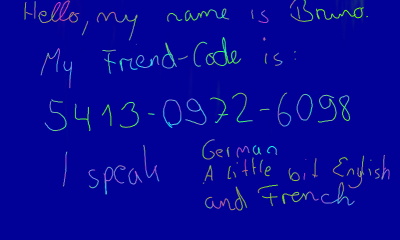 Hello, my name is Bruno.
My Friend-Code is:
5413-0972-6098
I speak German
A little bit English
and French